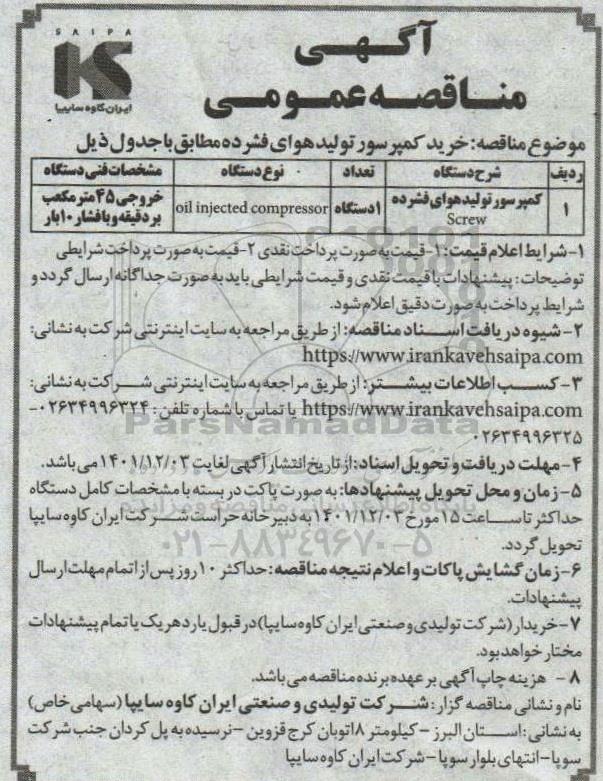 SAIPA
ایران کاوه سایپا
آگهی
مناقصه عمومی
موضوع مناقصه: خرید کمپرسور تولید هوای فشرده مطابق با جدول ذیل
ردیف شرح دستگاه تعداد نوع دستگاه مشخصات فنی دستگاه
۱ کمپرسور تولید هوای فشرده Screw ۱ دستگاه oil injected compressor خروجی ۴۵ متر مکعب بر دقیقه و با فشار ۱۰ بار
۱- شرایط اعلام قیمت: ۱- قیمت به صورت پرداخت نقدی ۲- قیمت به صورت پرداخت شرایطی
توضیحات: پیشنهادات با قیمت نقدی و قیمت شرایطی باید به صورت جداگانه ارسال گردد و
شرایط پرداخت به صورت دقیق اعلام شود.
۲- شیوه دریافت اسناد مناقصه: از طریق مراجعه به سایت اینترنتی شرکت به نشانی:
https://www.irankavehsaipa.com
۳- کسب اطلاعات بیشتر: از طریق مراجعه به سایت اینترنتی شرکت به نشانی:
https://www.irankavehsaipa.com یا تماس با شماره تلفن: ۰۲۶۳۴۹۹۶۳۲۴-
۰۲۶۳۴۹۹۶۳۲۵
ParsNamadData
۴- مهلت دریافت و تحویل اسناد: از تاریخ انتشار آگهی لغایت ۱۴۰۱/۱۲/۰۳ می باشد.
۵- زمان و محل تحویل پیشنهادها: به صورت پاکت در بسته با مشخصات کامل دستگاه
حداکثر تا ساعت ۱۵ مورخ ۱۴۰۱/۱۲/۰۳ به دبیرخانه حراست شرکت ایران کاوه سایپا
تحویل گردد.
۰۲۱-۸۸۳۴۹۶۷۰-۵
۶- زمان گشایش پاکات و اعلام نتیجه مناقصه: حداکثر ۱۰ روز پس از اتمام مهلت ارسال
پیشنهادات.
۷- خریدار (شرکت تولیدی و صنعتی ایران کاوه سایپا) در قبول یا رد هر یک یا تمام پیشنهادات
مختار خواهد بود.
۸- هزینه چاپ آگهی بر عهده برنده مناقصه می باشد.
نام و نشانی مناقصه گزار: شرکت تولیدی و صنعتی ایران کاوه سایپا (سهامی خاص)
به نشانی: استان البرز - کیلومتر ۱۸ اتوبان کرج قزوین - نرسیده به پل کردان جنب شرکت
سوپا - انتهای بلوار سوپا - شرکت ایران کاوه سایپا